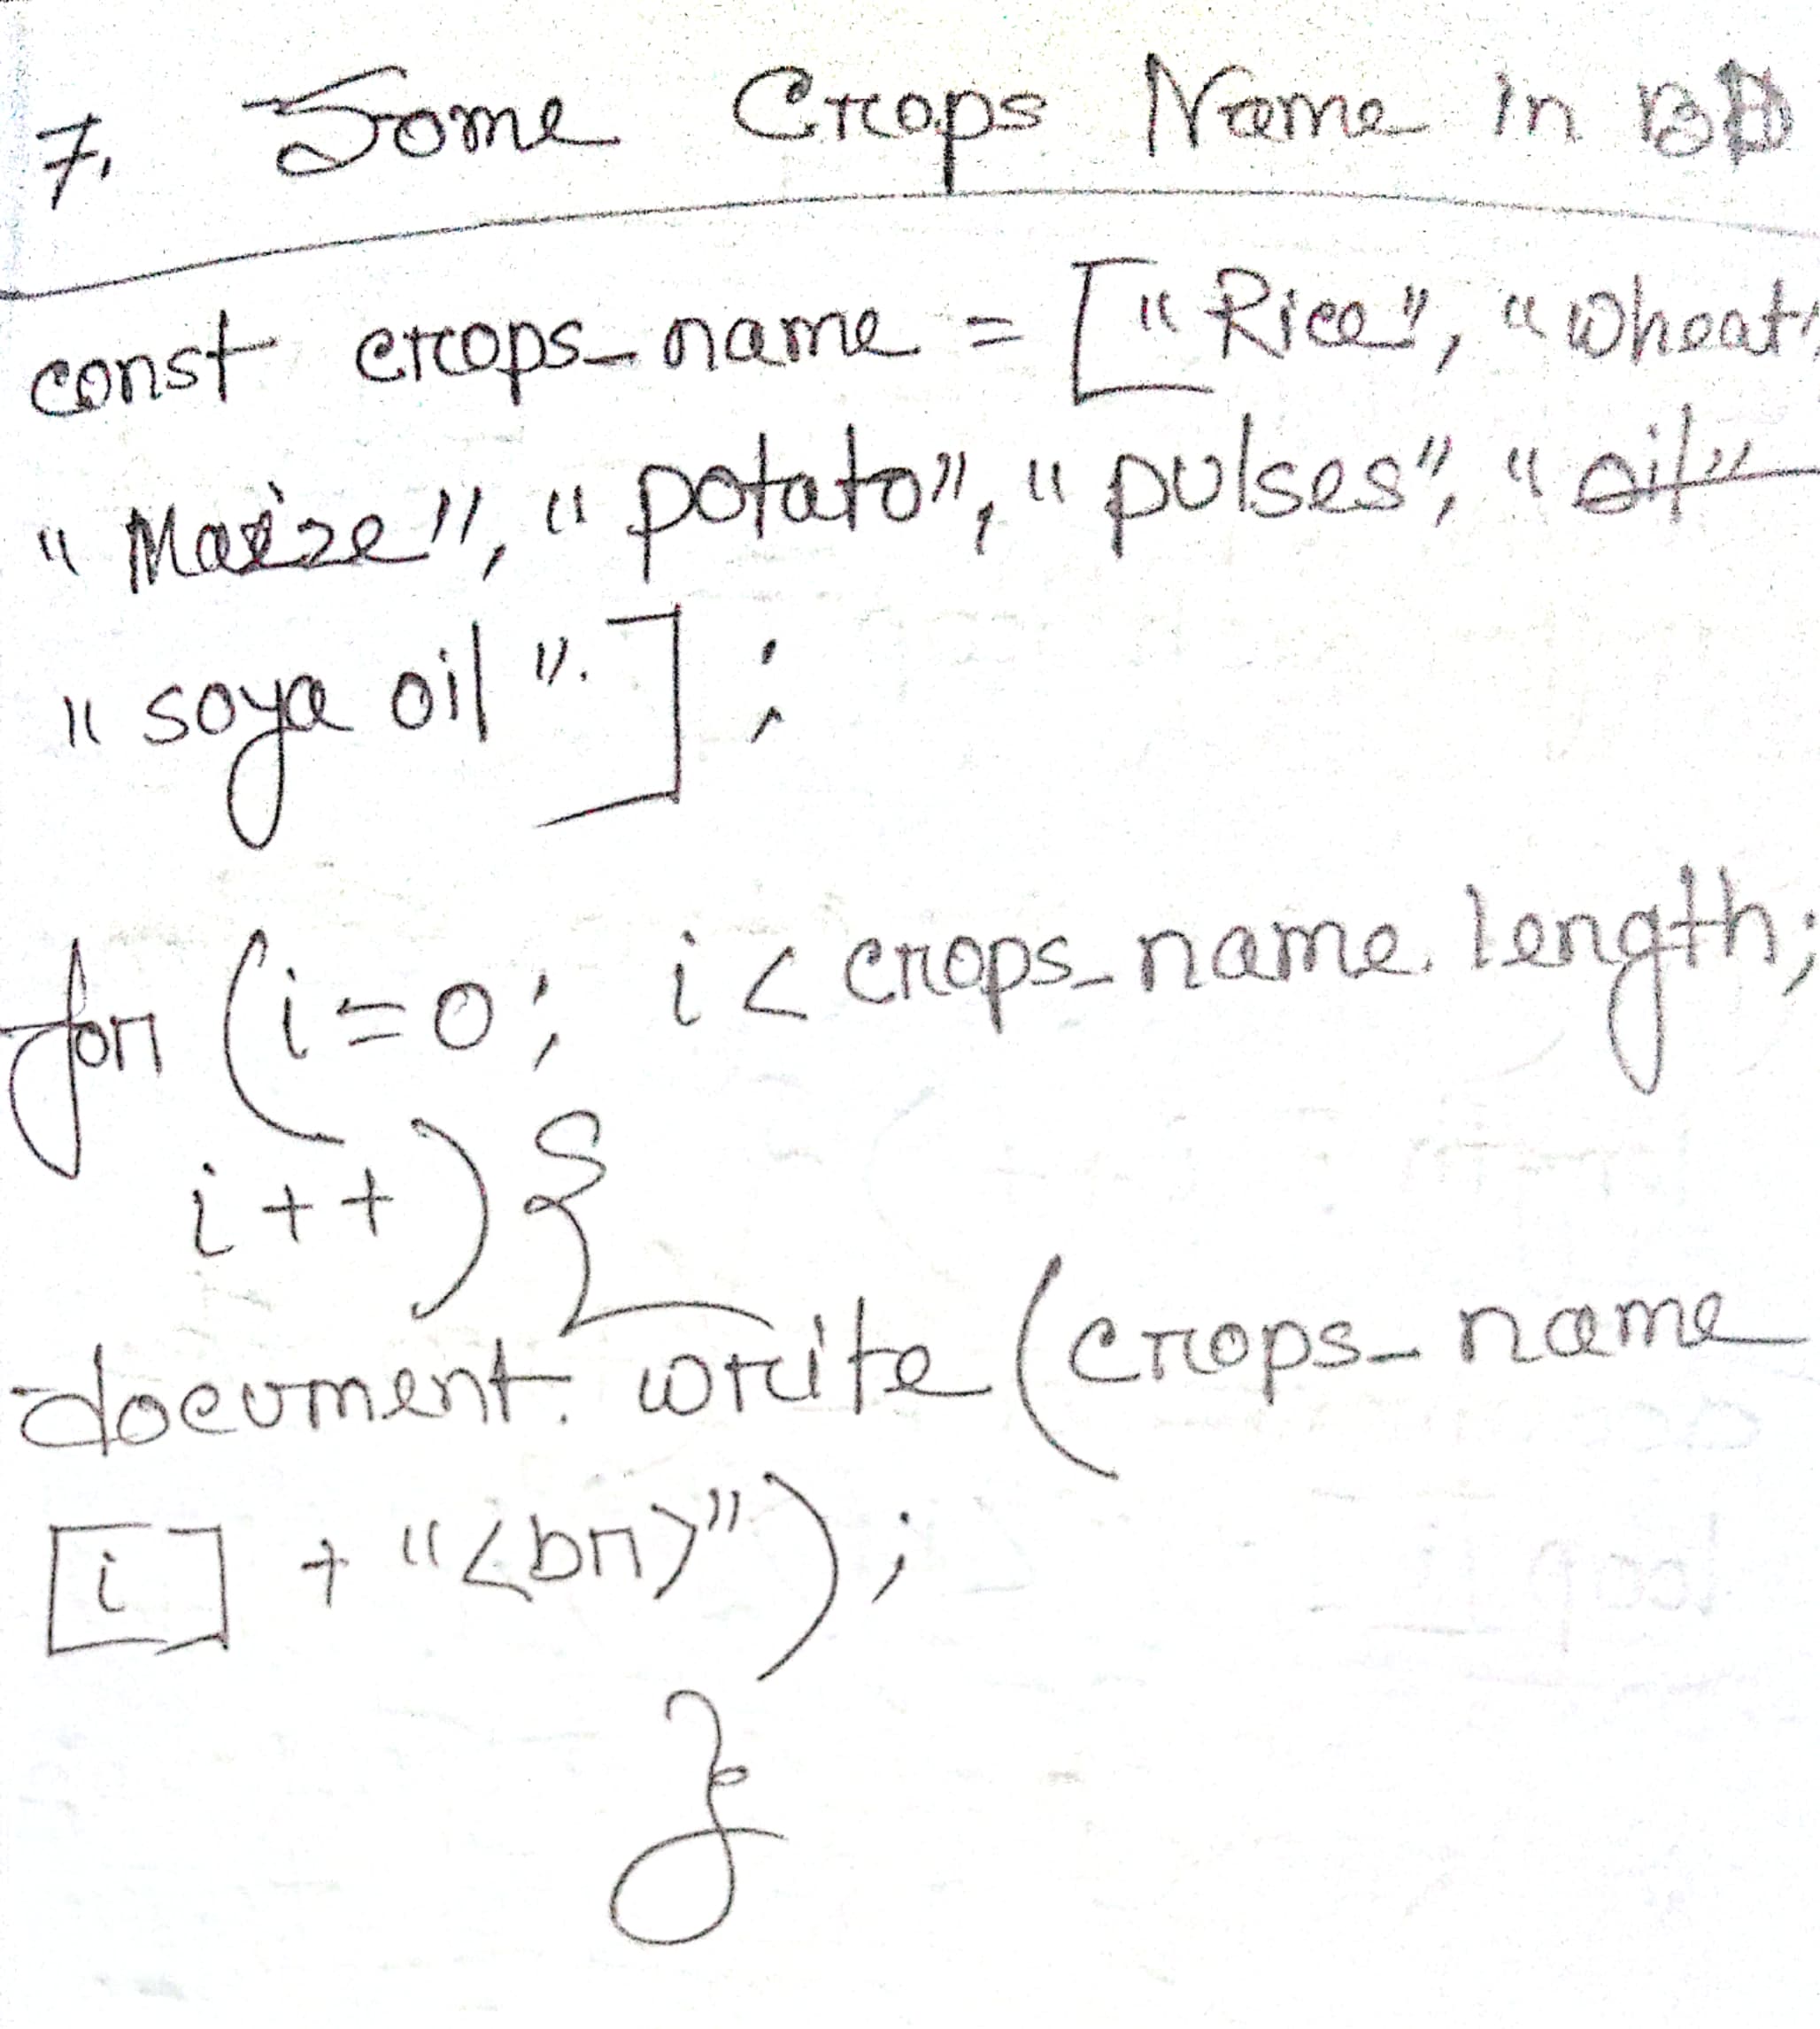 7. Some Crops Name in BD
const crops_name = ["Rice", "wheat"
"Maize", "potato", "pulses", "oil"
"soya oil".];
for (i=0; i < crops_name.length;
i++) {
document.write (crops_name
[i] + "<br>");
}